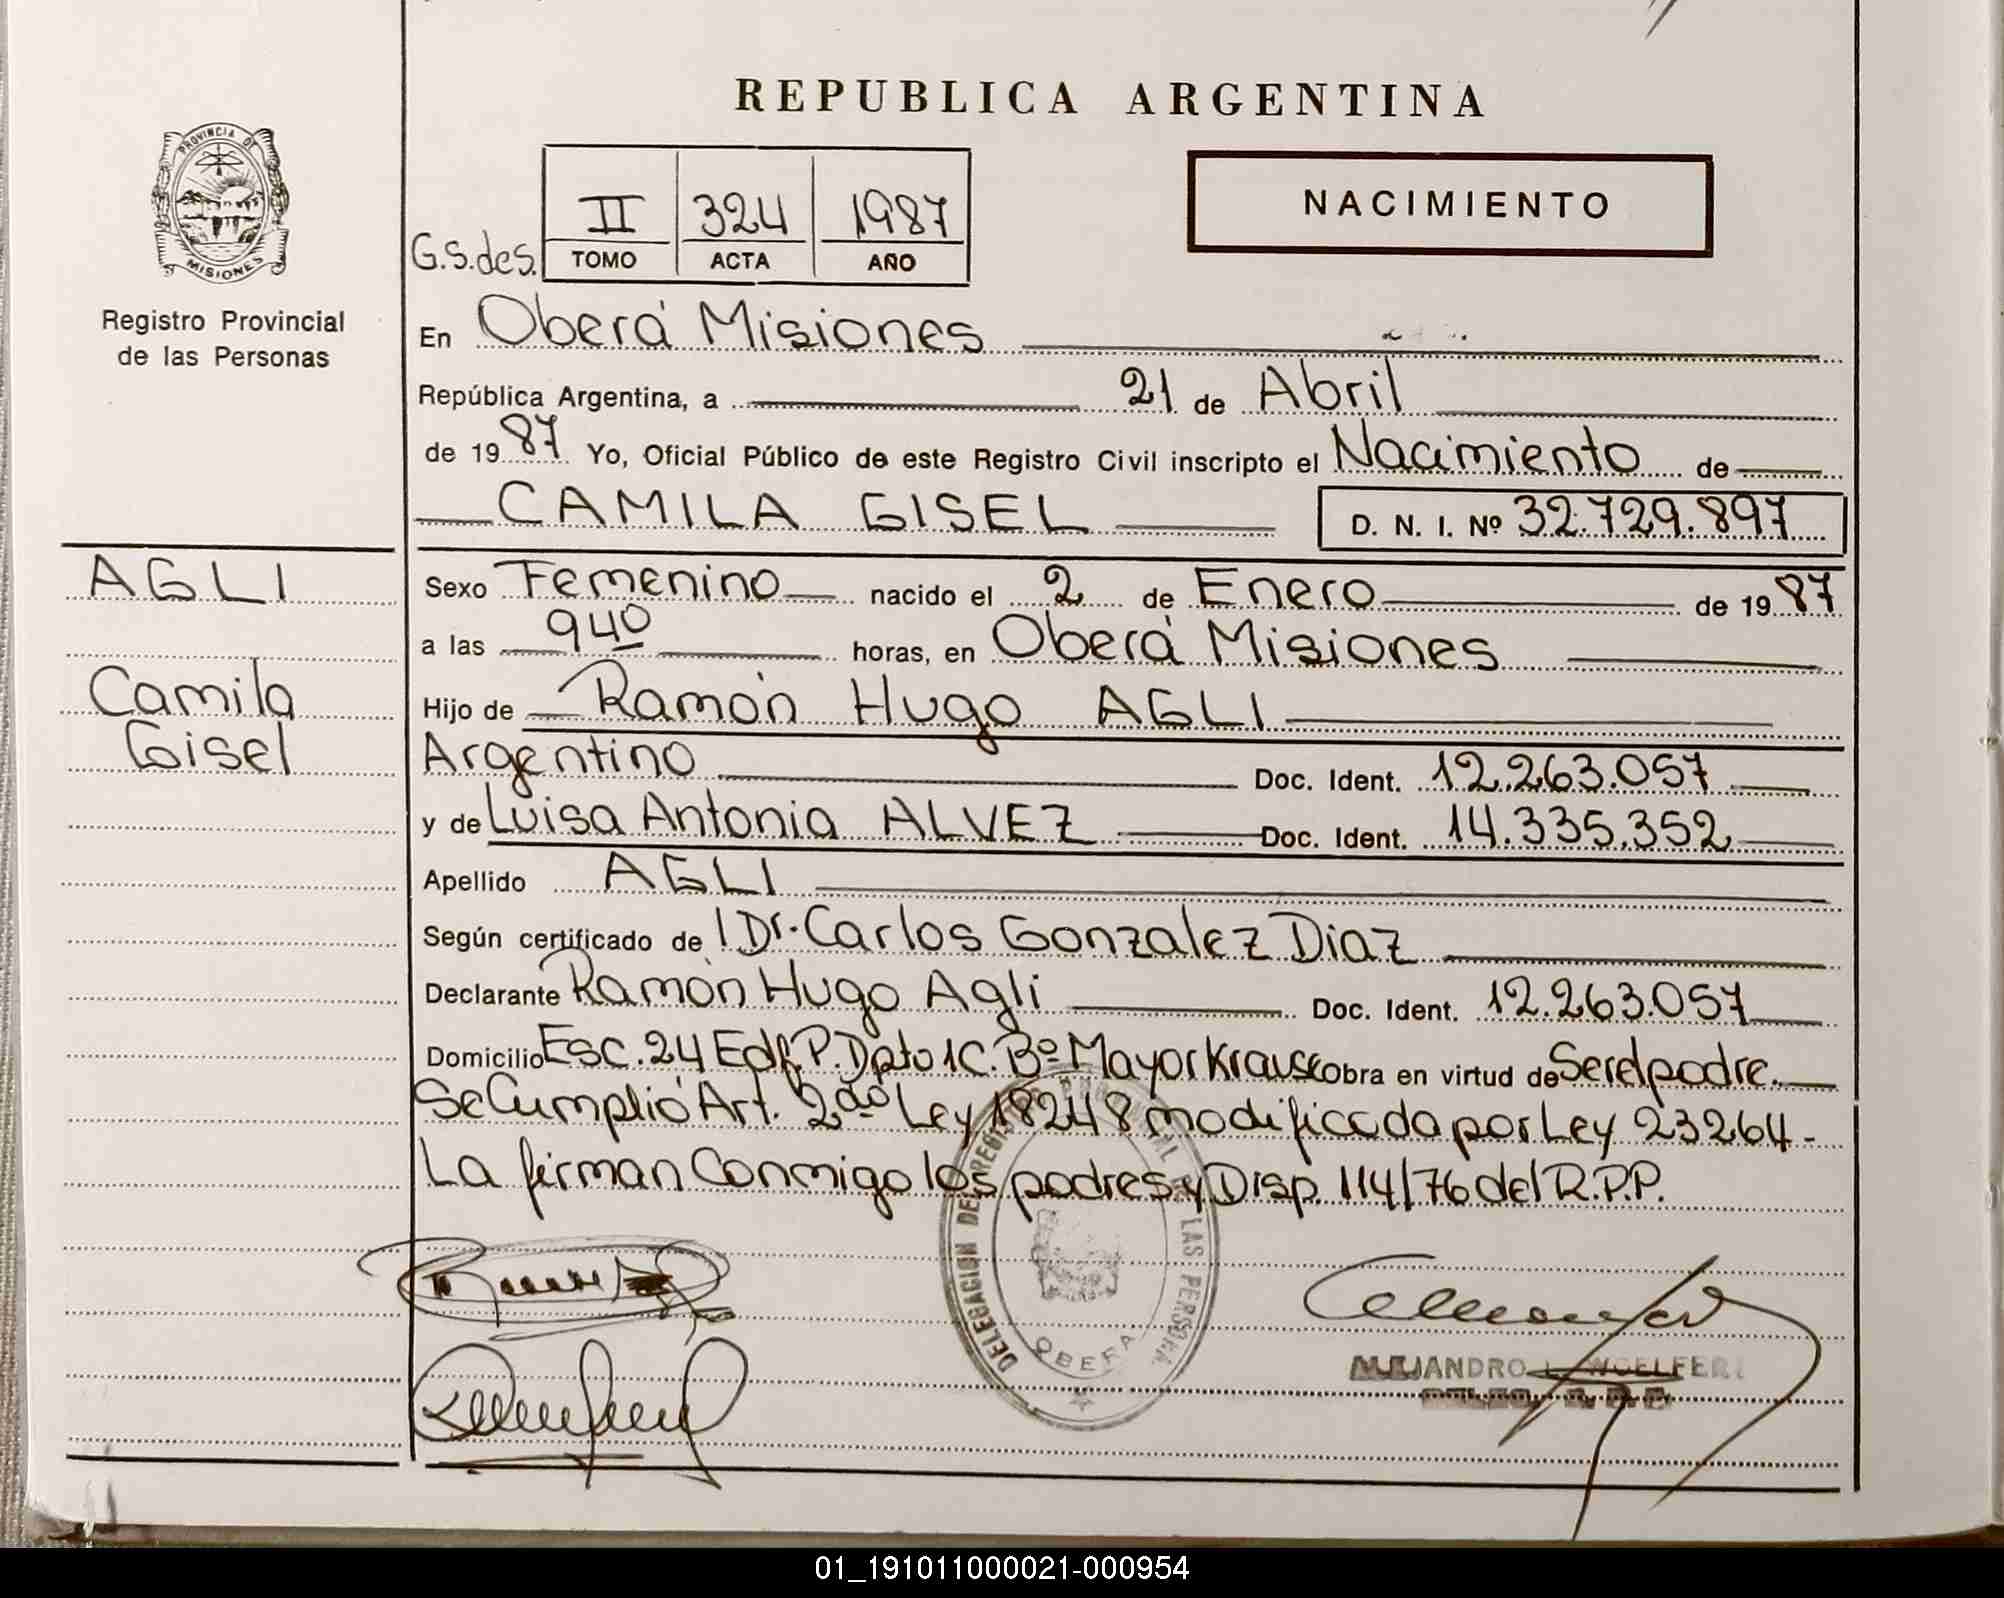 REPUBLICA ARGENTINA
PROVINCIA DE
MISIONES
Registro Provincial
de las Personas
NACIMIENTO
G.S.des.
II 324 1987
TOMO ACTA AÑO
En Oberá Misiones
República Argentina, a 21 de Abril
de 1987 Yo, Oficial Público de este Registro Civil inscripto el Nacimiento de
CAMILA GISEL D. N. I. Nº 32.729.897
AGLI
Camila
Gisel
Sexo Femenino nacido el 2 de Enero de 1987
a las 940 horas, en Oberá Misiones
Hijo de Ramón Hugo AGLI
Argentino Doc. Ident. 12.263.057
y de Luisa Antonia ALVEZ Doc. Ident. 14.335.352
Apellido AGLI
Según certificado de l Dr. Carlos Gonzalez Diaz
Declarante Ramón Hugo Agli Doc. Ident. 12.263.057
Domicilio Esc. 24 Edf. P. Dpto 1C. Bº Mayor Krause obra en virtud de Ser el padre.
Se Cumplió Art. 2do Ley 18248 modificada por Ley 23264-
La firman Conmigo los padres y Disp. 114/76 del R.P.P.
DELEGACION DEL REGISTRO PROVINCIAL DE LAS PERSONAS
OBERA
ALEJANDRO L. WOELFERT
DELEG. R. P. P.
01_191011000021-000954